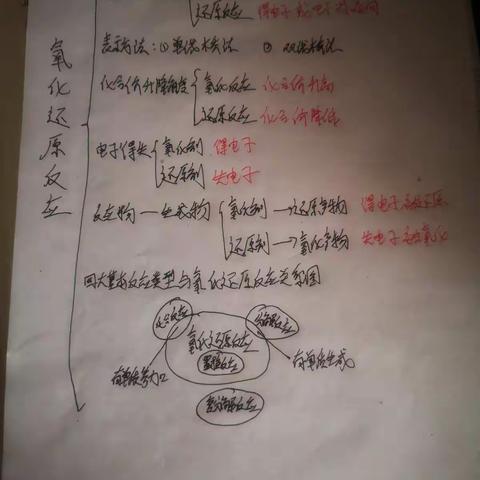 还原反应 得电子
表示方法：①单线桥法 ②双线桥法
氧化还原反应
化合价升降角度
氧化反应 化合价升高
还原反应 化合价降低
电子得失
氧化剂 得电子
还原剂 失电子
反应物—生成物
氧化剂→还原产物 得电子被还原
还原剂→氧化产物 失电子被氧化
四大基本反应类型与氧化还原反应关系图
化合反应 分解反应
氧化还原反应
置换反应
有单质参加 有单质生成
复分解反应